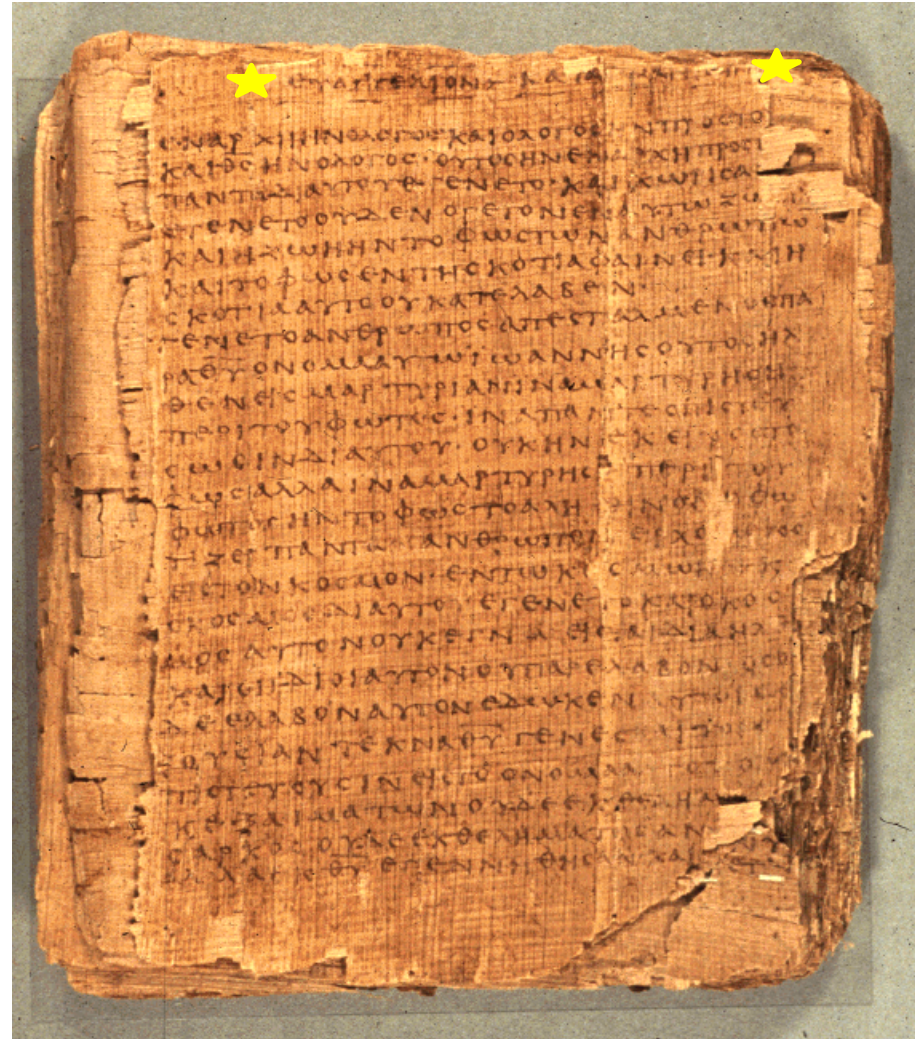 ΕΥΑΓΓΕΛΙΟΝ ΚΑΤΑ
ΕΝΑΡΧΗΗΝΟΛΟΓΟϹΚΑΙΟΛΟΓΟϹΗΝΠΡΟϹΤΟ
ΚΑΙΘ̅Ϲ̅ΗΝΟΛΟΓΟϹ·ΟΥΤΟϹΗΝΕΝΑΡΧΗΠΡΟϹΤ
ΠΑΝΤΑΔΙΑΥΤΟΥΕΓΕΝΕΤΟ·ΚΑΙΧΩΡΙϹΑΥ
ΕΓΕΝΕΤΟΟΥΔΕΝΟΓΕΓΟΝΕΝΕΝΑΥΤΩΖΩΗ
ΚΑΙΗΖΩΗΗΝΤΟΦΩϹΤΩΝΑΝΘΡΩΠΩ
ΚΑΙΤΟΦΩϹΕΝΤΗϹΚΟΤΙΑΦΑΙΝΕΙ·ΚΑΙΗ
ϹΚΟΤΙΑΑΥΤΟΟΥΚΑΤΕΛΑΒΕΝ·
ΓΕΝΕΤΟΑΝΘΡΩΠΟϹΑΠΕϹΤΑΛΜΕΝΟϹΠΑ
ΡΑΘ̅Υ̅ΟΝΟΜΑΑΥΤΩΙΩΑΝΝΗϹΟΥΤΟϹΗΛ
ΘΕΝΕΙϹΜΑΡΤΥΡΙΑΝΙΝΑΜΑΡΤΥΡΗϹΗ
ΠΕΡΙΤΟΥΦΩΤΟϹ·ΙΝΑΠΑΝΤΕϹΠΙϹΤΕΥ
ϹΩϹΙΝΔΙΑΥΤΟΥ·ΟΥΚΗΝΕΚΕΙΝΟϹΤΟ
ΦΩϹΑΛΛΑΙΝΑΜΑΡΤΥΡΗϹΗΠΕΡΙΤΟΥ
ΦΩΤΟϹΗΝΤΟΦΩϹΤΟΑΛΗΘΙΝΟΝΟΦΩ
ΤΙΖΕΙΠΑΝΤΑΑΝΘΡΩΠΟΝΕΡΧΟΜΕΝΟΝ
ΕΙϹΤΟΝΚΟϹΜΟΝ·ΕΝΤΩΚΟϹΜΩΗΝΚΑΙ
ΟΚΟϹΜΟϹΔΙΑΥΤΟΥΕΓΕΝΕΤΟΚΑΙΟΚΟϹ
ΜΟϹΑΥΤΟΝΟΥΚΕΓΝΩΕΙϹΤΑΙΔΙΑΗΛΘΕ
ΚΑΙΟΙΙΔΙΟΙΑΥΤΟΝΟΥΠΑΡΕΛΑΒΟΝ·ΟϹΟΙ
ΔΕΕΛΑΒΟΝΑΥΤΟΝΕΔΩΚΕΝΑΥΤΟΙϹΕΞ
ΟΥϹΙΑΝΤΕΚΝΑΘ̅Υ̅ΓΕΝΕϹΘΑΙΤΟΙϹ
ΠΙϹΤΕΥΟΥϹΙΝΕΙϹΤΟΟΝΟΜΑΑΥΤΟΥΟΙΟΥ
ΚΕΞΑΙΜΑΤΩΝΟΥΔΕΕΚΘΕΛΗΜΑ
ϹΑΡΚΟϹΟΥΔΕΕΚΘΕΛΗΜΑΤΟϹΑΝ
ΑΛΛΑΕΚΘ̅Υ̅ΕΓΕΝΝΗΘΗϹΑΝΚΑΙ